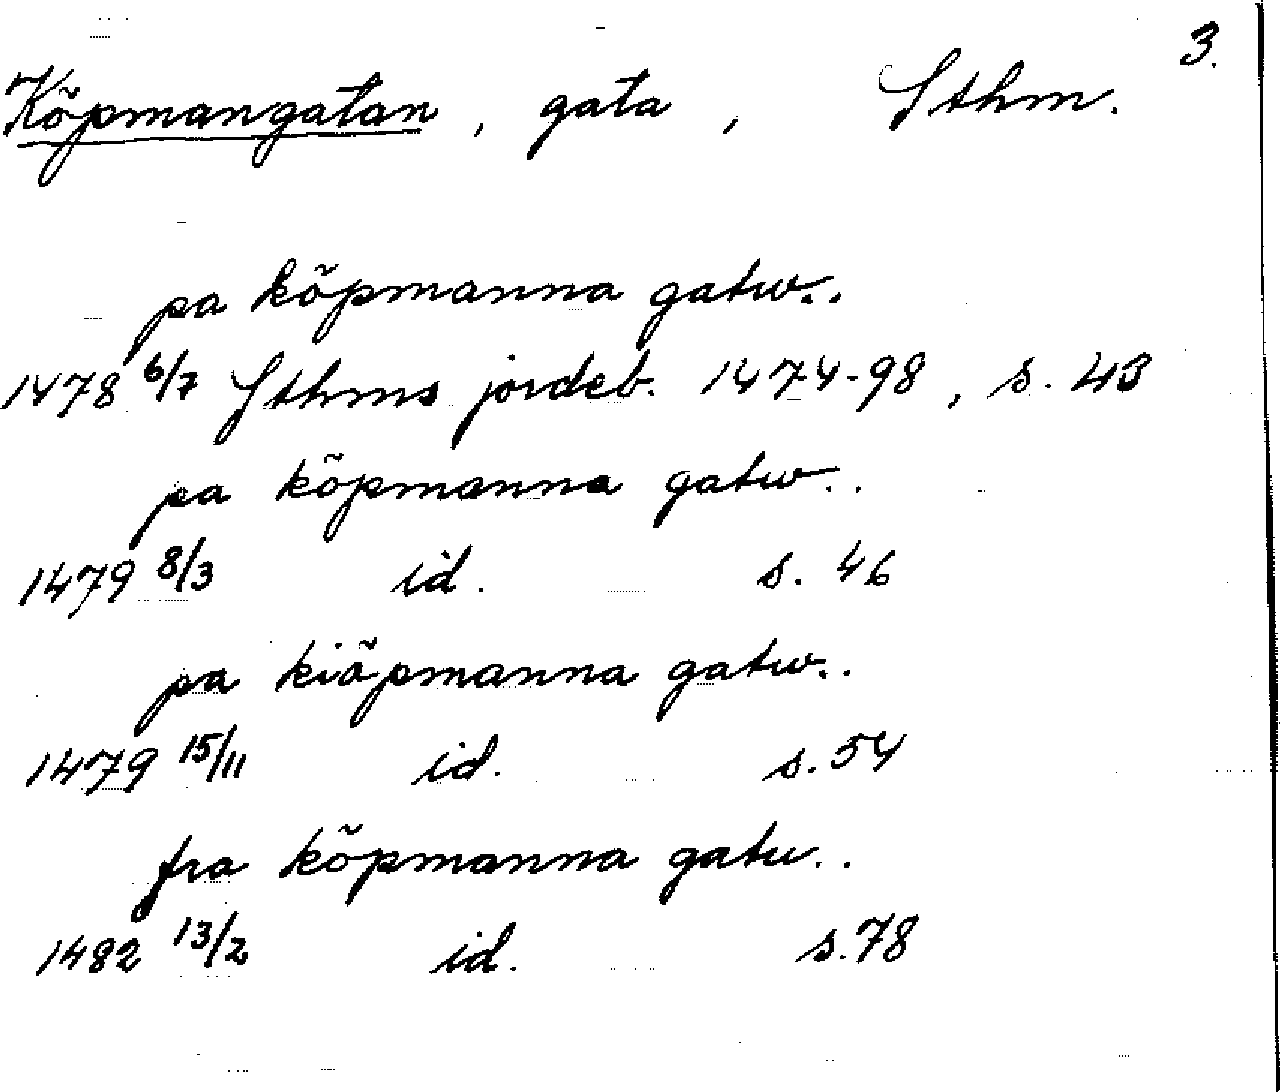 3.
Köpmangatan, gata, Sthm.
pa köpmanna gatw..
1478 6/7 Sthms jordeb. 1474-98, s. 43
pa köpmanna gatw..
1479 8/3 id. s. 46
pa kiöpmanna gatw..
1479 15/11 id. s. 54
fra köpmanna gatu..
1482 13/2 id. s. 78